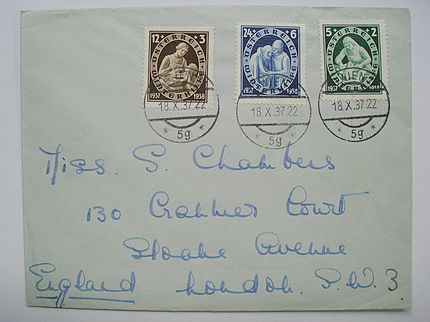 12+3 24+6 5+2
ÖSTERREICH ÖSTERREICH ÖSTERREICH
1937 1938 1937 1938 1937 1938
WIEN
18.X.37.22 18.X.37.22 18.X.37.22
* 5g * * 5g * * 5g *
Miss. S. Chambers
130 Cranmer Court
Sloane Avenue
England London. S.W. 3